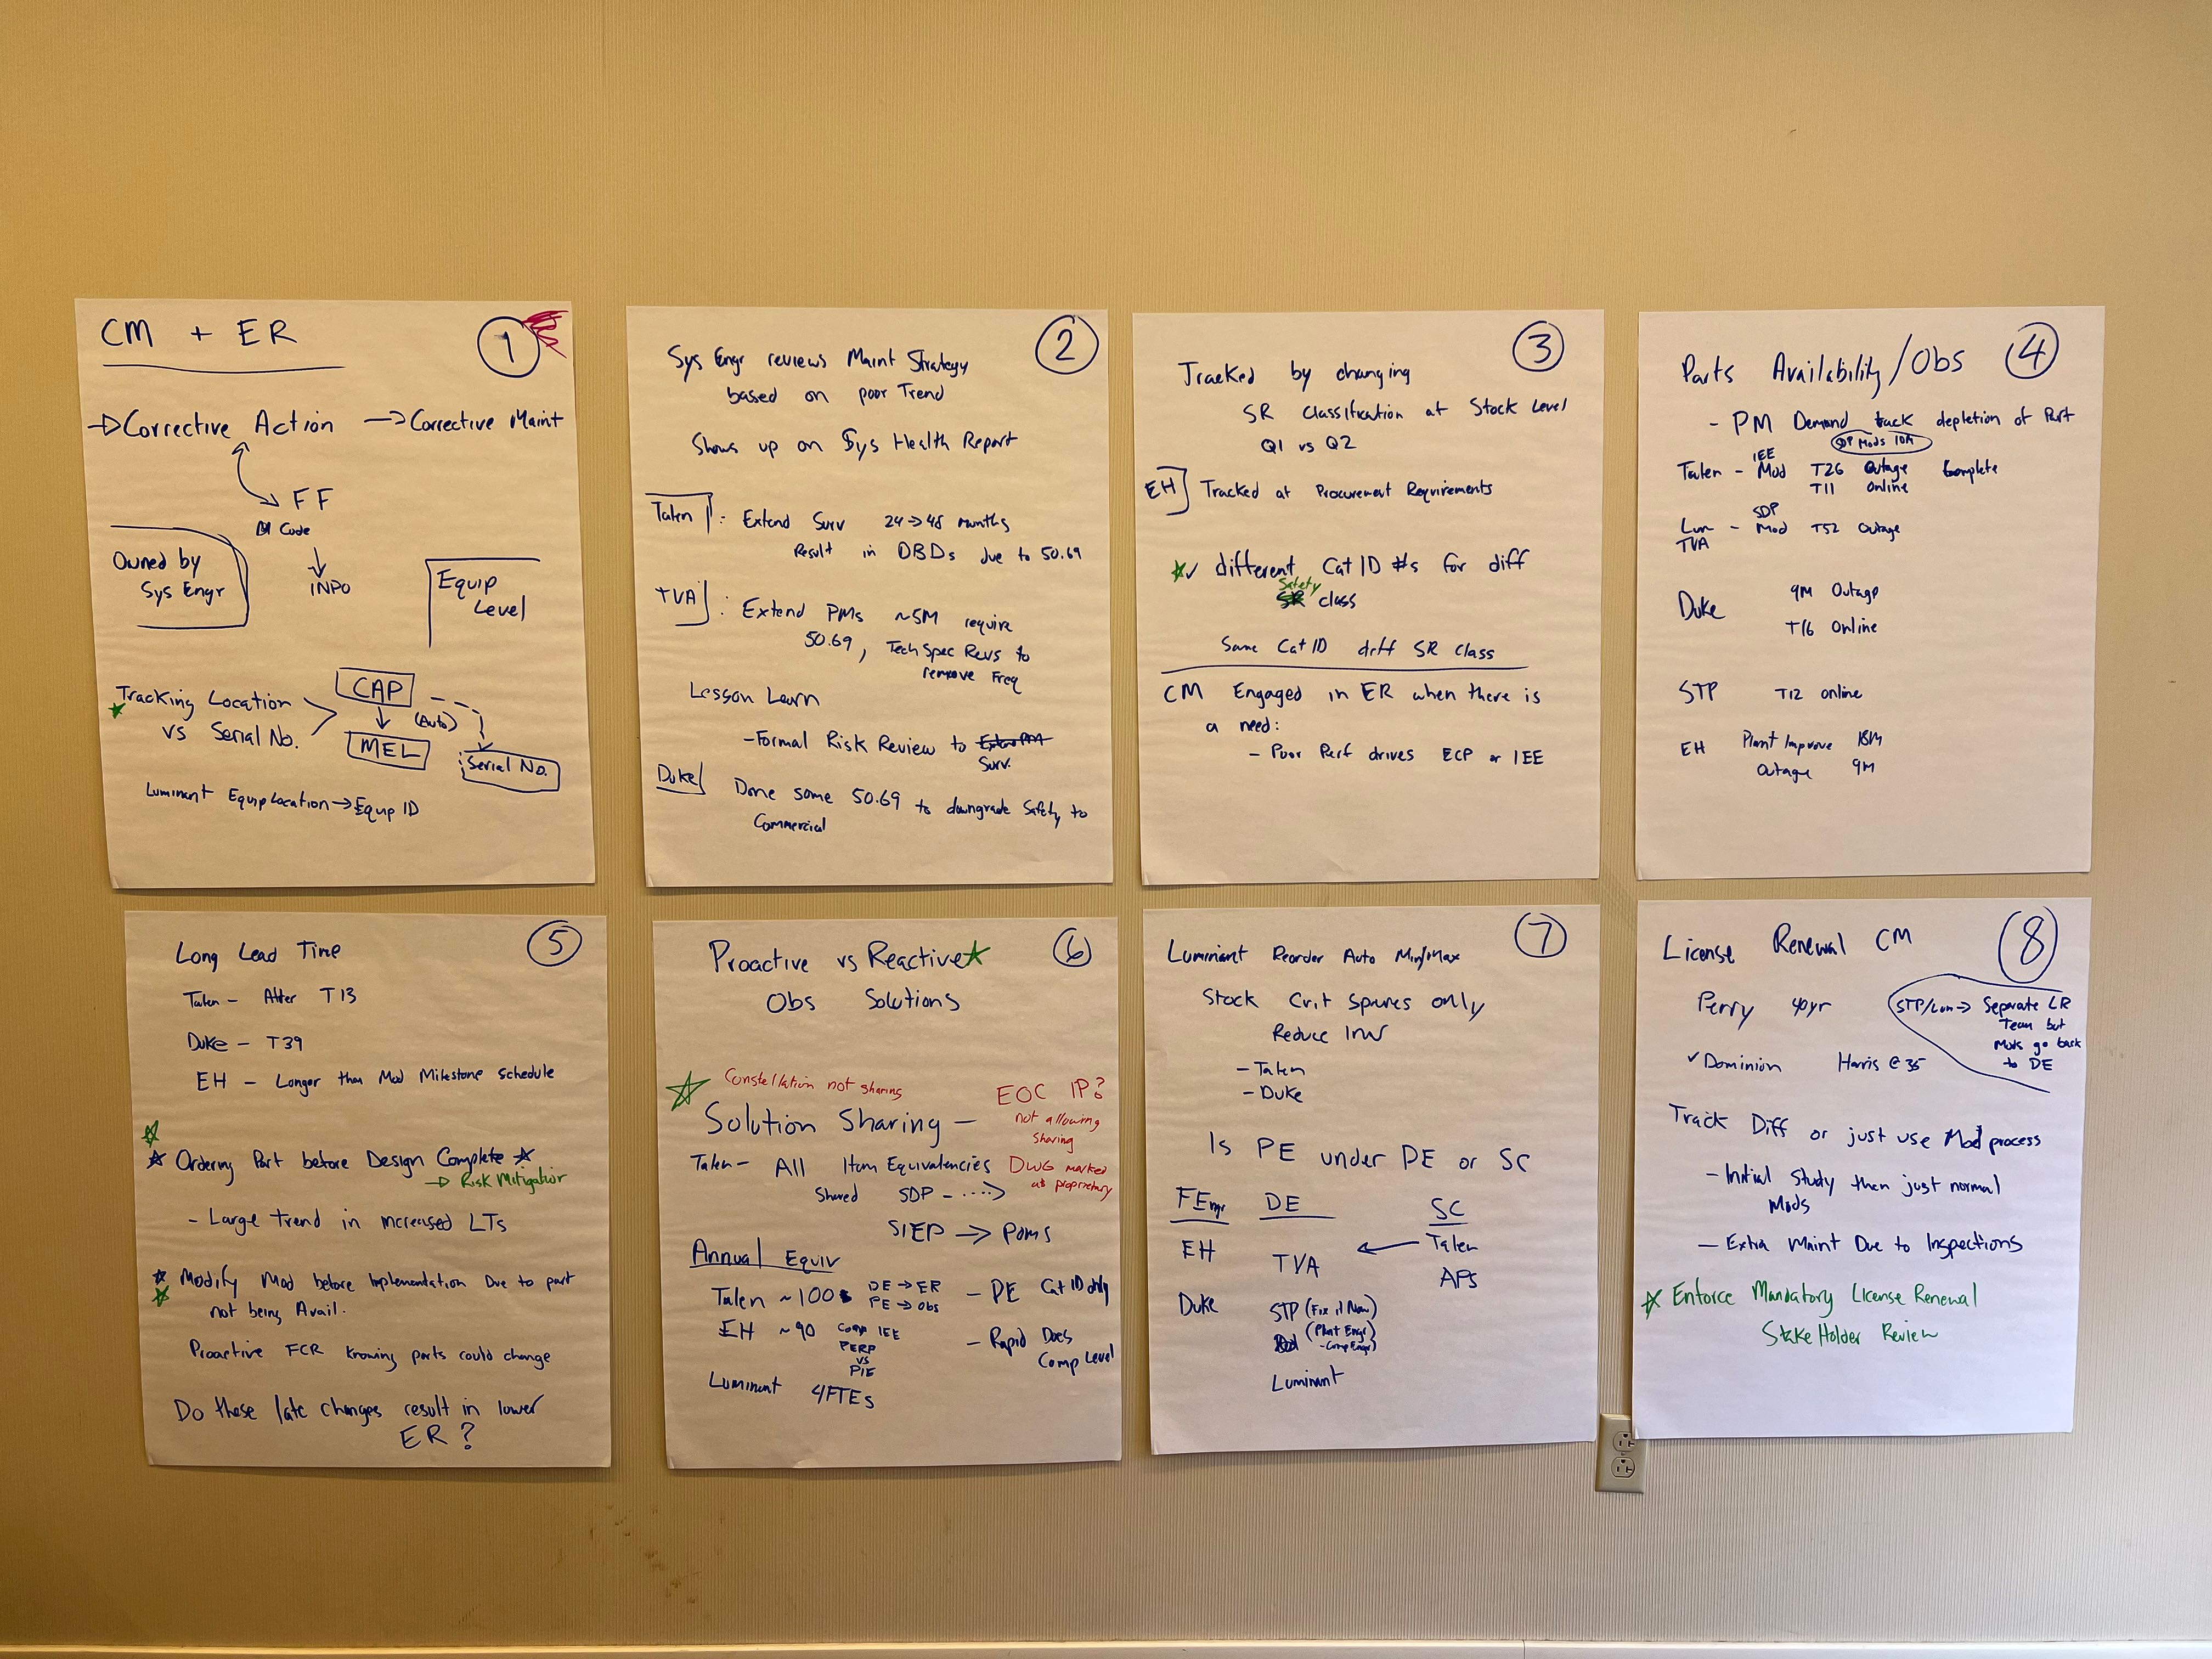 CM + ER
1
→ Corrective Action → Corrective Maint
FF
Code
↓
INPO
Owned by
Sys Engr
Equip
Level
Tracking Location
vs Serial No.
CAP
↓ (Auto)
MEL
Serial No.
Luminant Equip Location → Equip ID
2
Sys Engr reviews Maint Strategy
based on poor Trend
Shows up on Sys Health Report
Talen : Extend Surv 24 → 48 months
Result in DBDs due to 50.69
TVA : Extend PMs ~5M require
50.69, Tech Spec Revs to
remove Freq
Lesson Learn
- Formal Risk Review to
Surv.
Duke Done some 50.69 to downgrade Safety to
Commercial
3
Tracked by changing
SR Classification at Stock Level
Q1 vs Q2
EH Tracked at Procurement Requirements
✓ different Cat ID #s for diff
Safety
class
Same Cat ID diff SR class
CM Engaged in ER when there is
a need:
- Poor Perf drives ECP or IEE
4
Parts Availability/Obs
- PM Demand track depletion of Part
SDP Mods 10M
IEE
Talen - Mod T26 Outage Complete
T11 Online
SDP
Lum - Mod T52 Outage
TVA
Duke 9M Outage
T16 Online
STP T12 online
EH Plant Improve 18M
Outage 9M
5
Long Lead Time
Talen - After T13
Duke - T39
EH - Longer than Mod Milestone Schedule
Ordering Part before Design Complete
→ Risk Mitigation
- Large trend in increased LTs
Modify Mod before Implementation Due to part
not being Avail.
Proactive FCR knowing parts could change
Do these late changes result in lower
ER?
6
Proactive vs Reactive
Obs Solutions
Constellation not sharing
EOC IP?
not allowing
sharing
Solution Sharing -
Talen - All Item Equivalencies
Shared SDP - ....>
DWG marked
as proprietary
SIEP → POMS
Annual Equiv
Talen ~100 DE → ER
PE → Obs
- PE Cat ID only
EH ~90 Comp IEE
PERP
vs
PIE
- Rapid Does
Comp Level
Luminant 4 FTEs
7
Luminant Reorder Auto Min/Max
Stock Crit Spares only
Reduce Inv
- Talen
- Duke
Is PE under DE or SC
FEngr DE SC
EH TVA ← Talen
APS
Duke STP (Fix it Now)
(Plant Engr)
- Comp Engr)
Luminant
8
License Renewal CM
Perry 40yr
STP/Lum → Separate LR
Team but
Mods go back
to DE
✓ Dominion Harris @ 35
Track Diff or just use Mod process
- Initial Study then just normal
Mods
- Extra Maint Due to Inspections
Enforce Mandatory License Renewal
Stake Holder Review